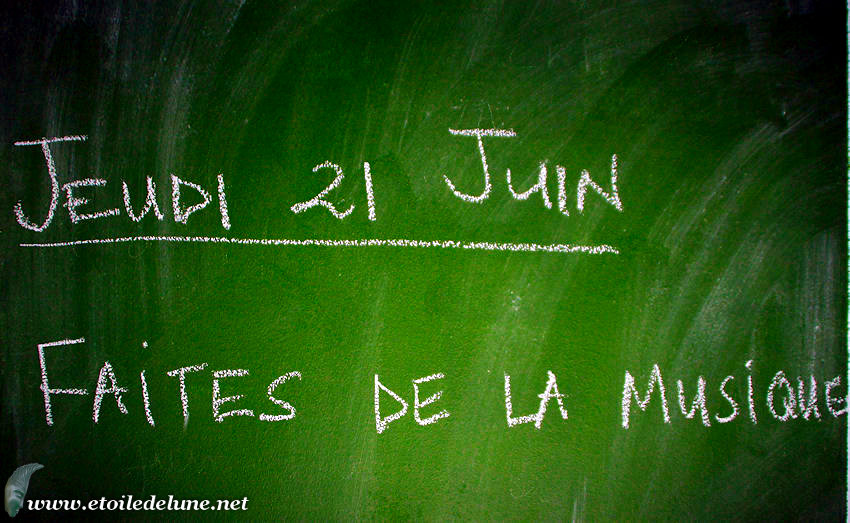 Jeudi 21 Juin
Faites de la Musique
www.etoiledelune.net